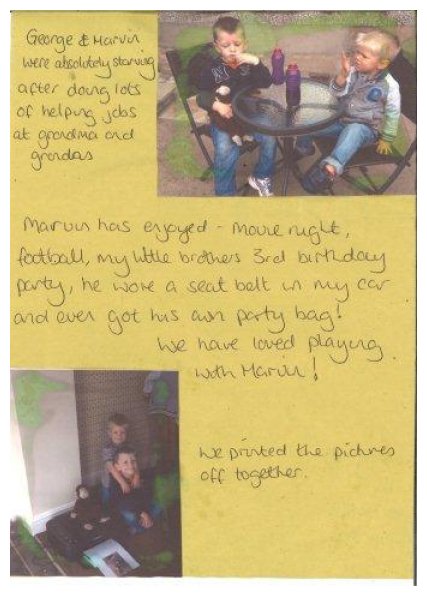 George & Marvin
were absolutely starving
after doing lots
of helping jobs
at grandma and
grandas
Marvin has enjoyed - movie night,
football, my little brothers 3rd birthday
party, he wore a seat belt in my car
and even got his own party bag!
We have loved playing
with Marvin!
We printed the pictures
off together.